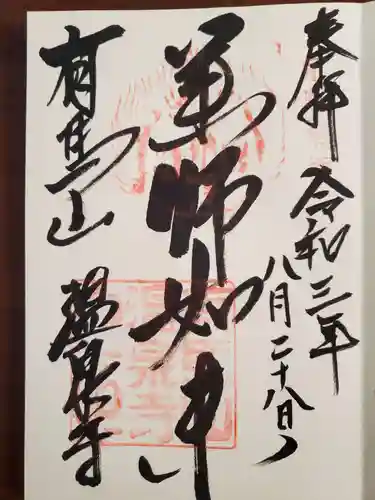 奉拝
令和三年
八月二十八日
薬師如来
有馬山
温泉寺